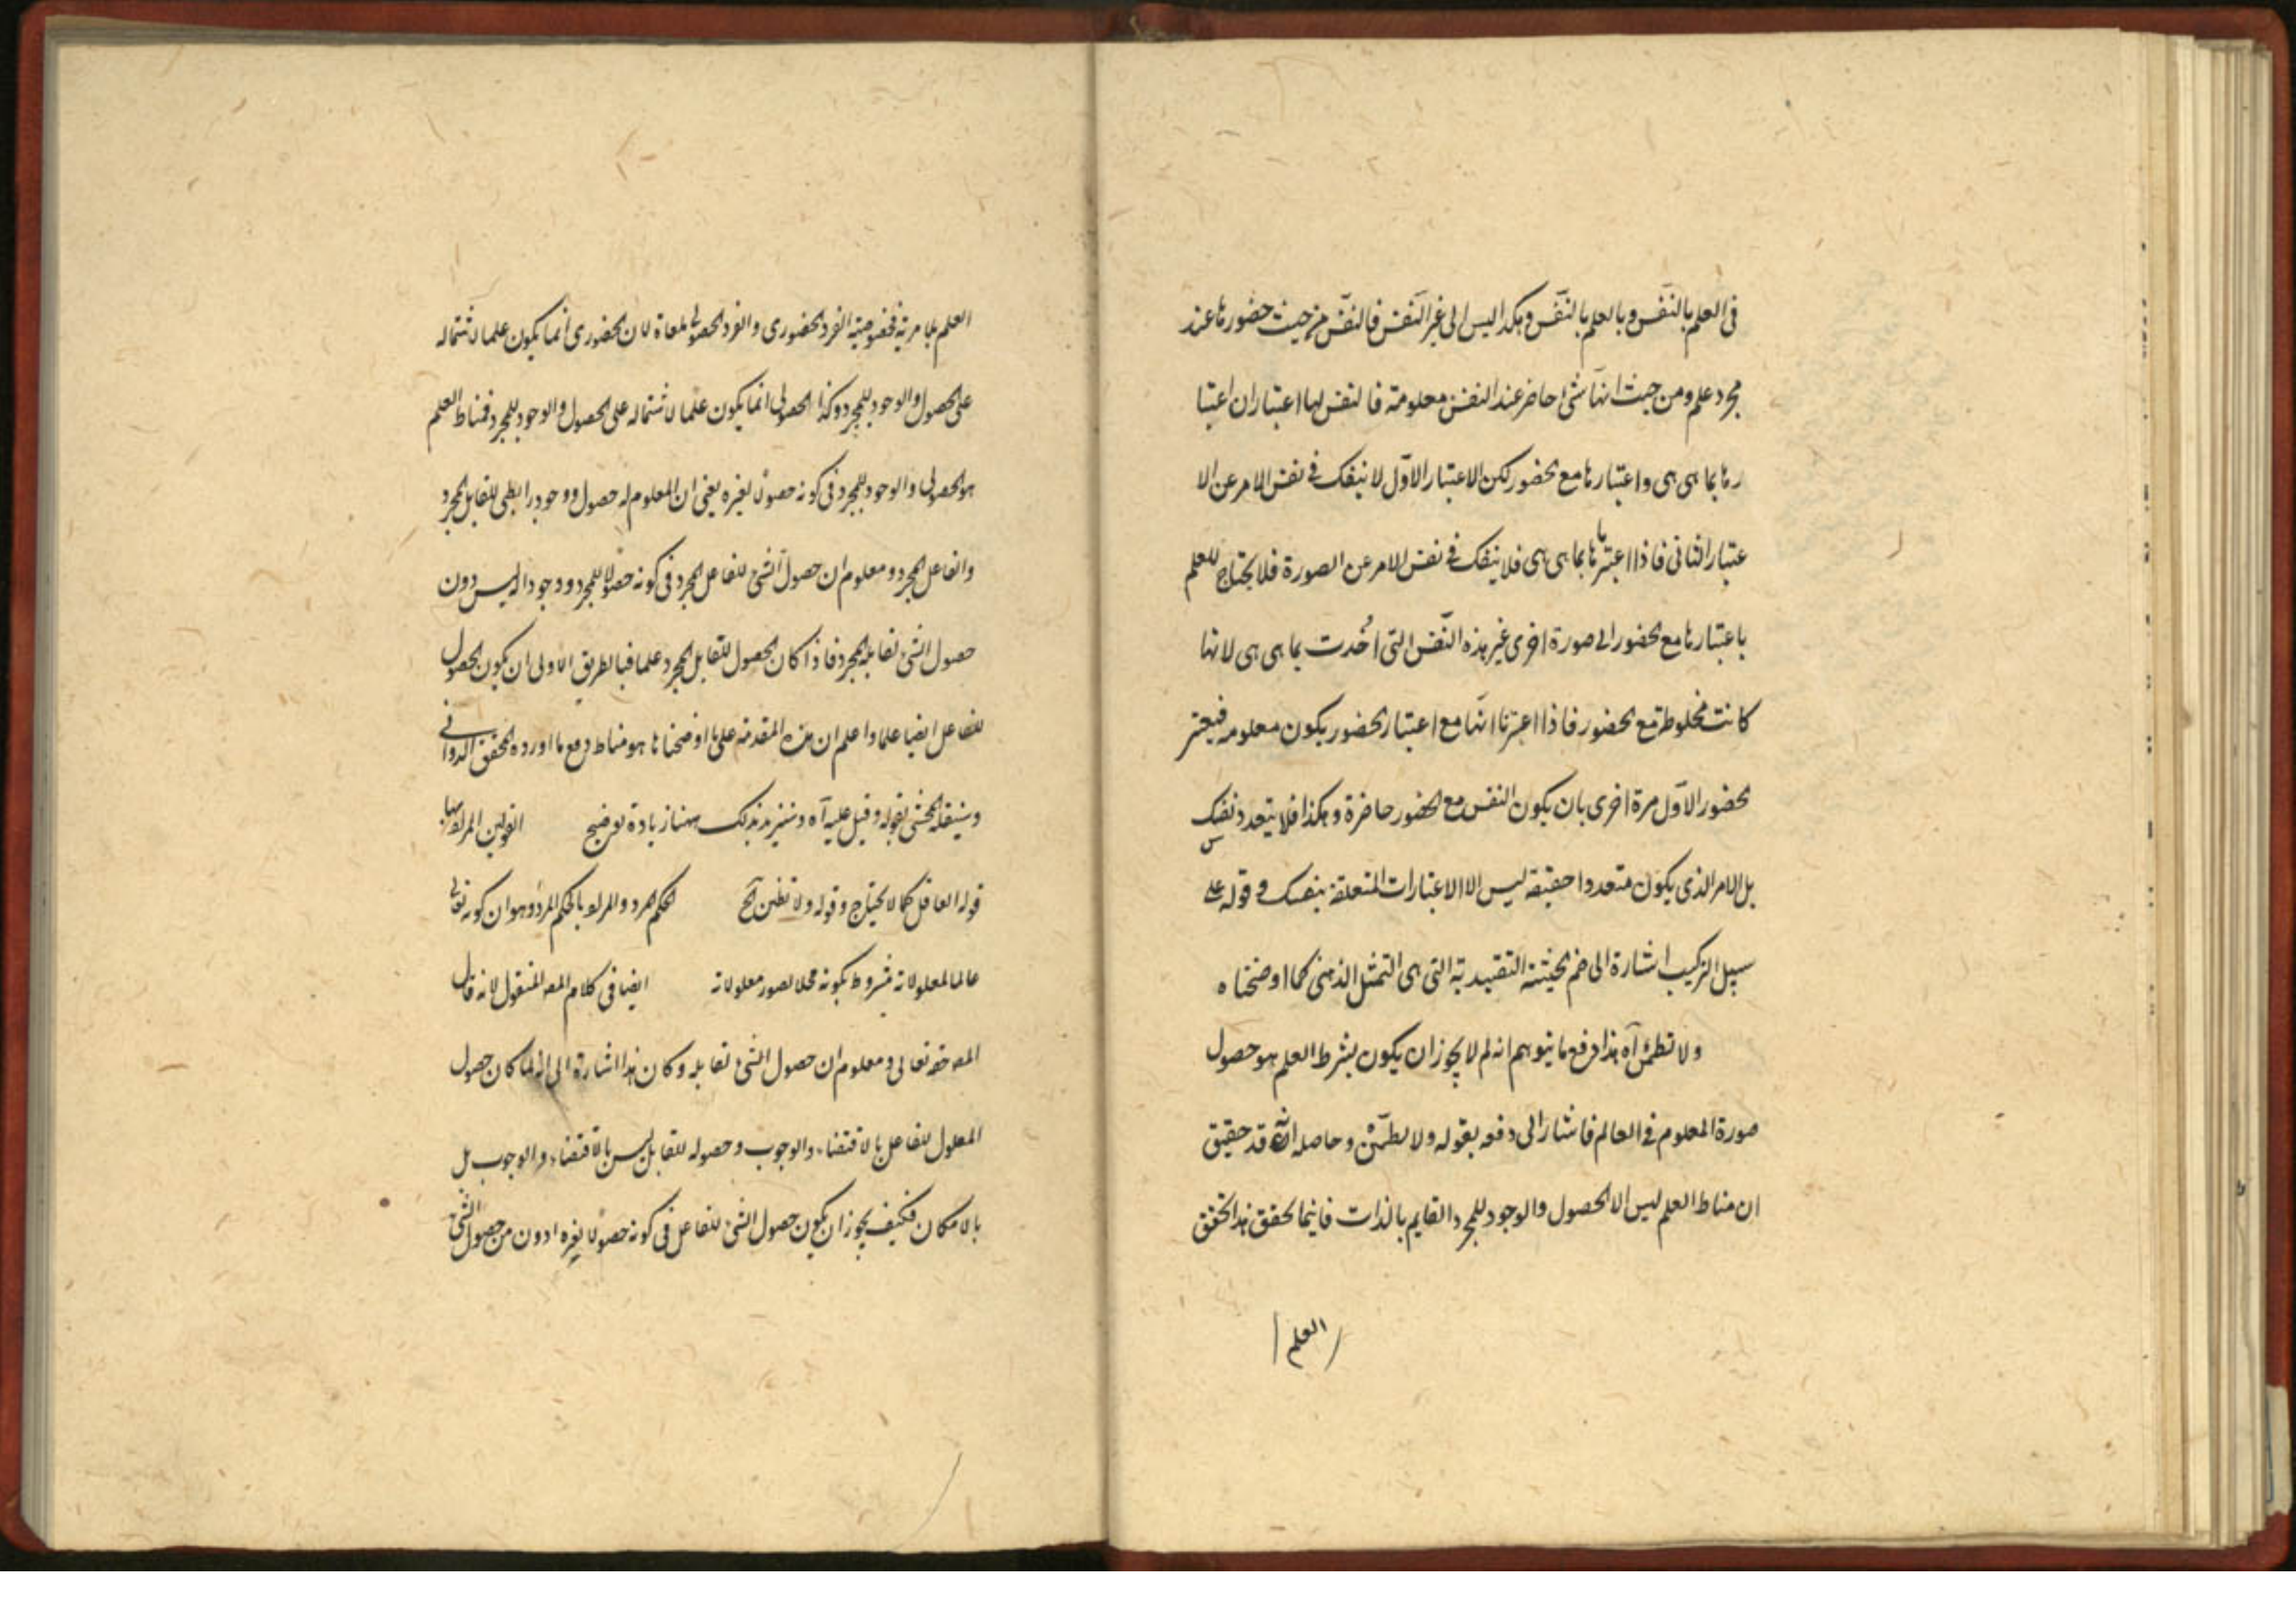 فى العلم بالنفس وبالعلم بالنفس وهكذا ليس الى غير النفس فالنفس من حيث حضورها عند
مجرد علم ومن حيث انها شئ حاضر عند النفس معلومة فالنفس لها اعتباران اعتبا
رها بما هى هى واعتبارها مع الحضور لكن الاعتبار الاول لا ينفك فى نفس الامر عن الا
عتبار الثانى فاذا اعتبرناها بما هى هى فلا ينفك فى نفس الامر عن الصورة فلا يحتاج للعلم
باعتبارها مع الحضور الى صورة اخرى غير هذه النفس التى اخذت بما هى هى لانها
كانت مخلوطة مع الحضور فاذا اعتبرنا انها مع اعتبار الحضور يكون معلومه فيعتبر
الحضور الاول مرة اخرى بان يكون النفس مع الحضور حاضرة وهكذا فلا يتعدد نفسك
بل الامر الذى يكون متعددا حقيقة ليس الا الاعتبارات المتعلقة بنفسك وقوله على
سبيل التركيب اشارة الى ضم الحيثية التقييدية التى هى التمثل الذهنى كما اوضحناه
ولا تظنن آه هذا دفع ما يتوهم انه لم لا يجوز ان يكون بشرط العلم هو حصول
صورة المعلوم فى العالم فاشار الى دفعه بقوله ولا تظنن وحاصله انه قد حقيق
ان مناط العلم ليس الا الحصول والوجود للمجرد القايم بالذات فاينما تحقق هذا تحقق
العلم
العلم بلا مرية فخصوصية الفرد الحضورى والفرد الحصولى ملغاة لان الحضورى انما يكون علما لاشتماله
على الحصول والوجود للمجرد وكذا الحصولى انما يكون علما لاشتماله على الحصول والوجود للمجرد فمناط العلم
هو الحصول والوجود للمجرد فى كونه حصولا لغيره يعنى ان المعلوم له حصول ووجود رابطى للقابل المجرد
والفاعل المجرد ومعلوم ان حصول الشئ للفاعل المجرد فى كونه حصولا للمجرد ووجودا له ليس دون
حصول الشئ لقابله المجرد فاذا كان الحصول للقابل المجرد علما فبالطريق الاولى ان يكون الحصول
للفاعل ايضا علما واعلم ان هذه المقدمة على ما اوضحناها هو مناط دفع ما اورده المحقق الدوانى
وسينقله المحشى بقوله وقيل عليه آه وسنزيد بذلك هنا زيادة توضيح القولين المراد بهما
قوله العاقل كما لا يحتاج وقوله ولا تظنن الخ الحكم المردود المراد بالحكم المردود هو ان كونه تعالى
عالما لمعلولاته مشروط بكونه محلا لصور معلولاته ايضا فى كلام المص المنقول لانه قال
المص حقه تعالى ومعلوم ان حصول الشئ لقابله وكان هذا اشارة الى انه لما كان حصول
المعلول للفاعل بالاقتضاء والوجوب وحصوله للقابل ليس بالاقتضاء والوجوب بل
بالامكان فكيف يجوز ان يكون حصول الشئ للفاعل فى كونه حصولا لغيره ادون من حصول الشئ